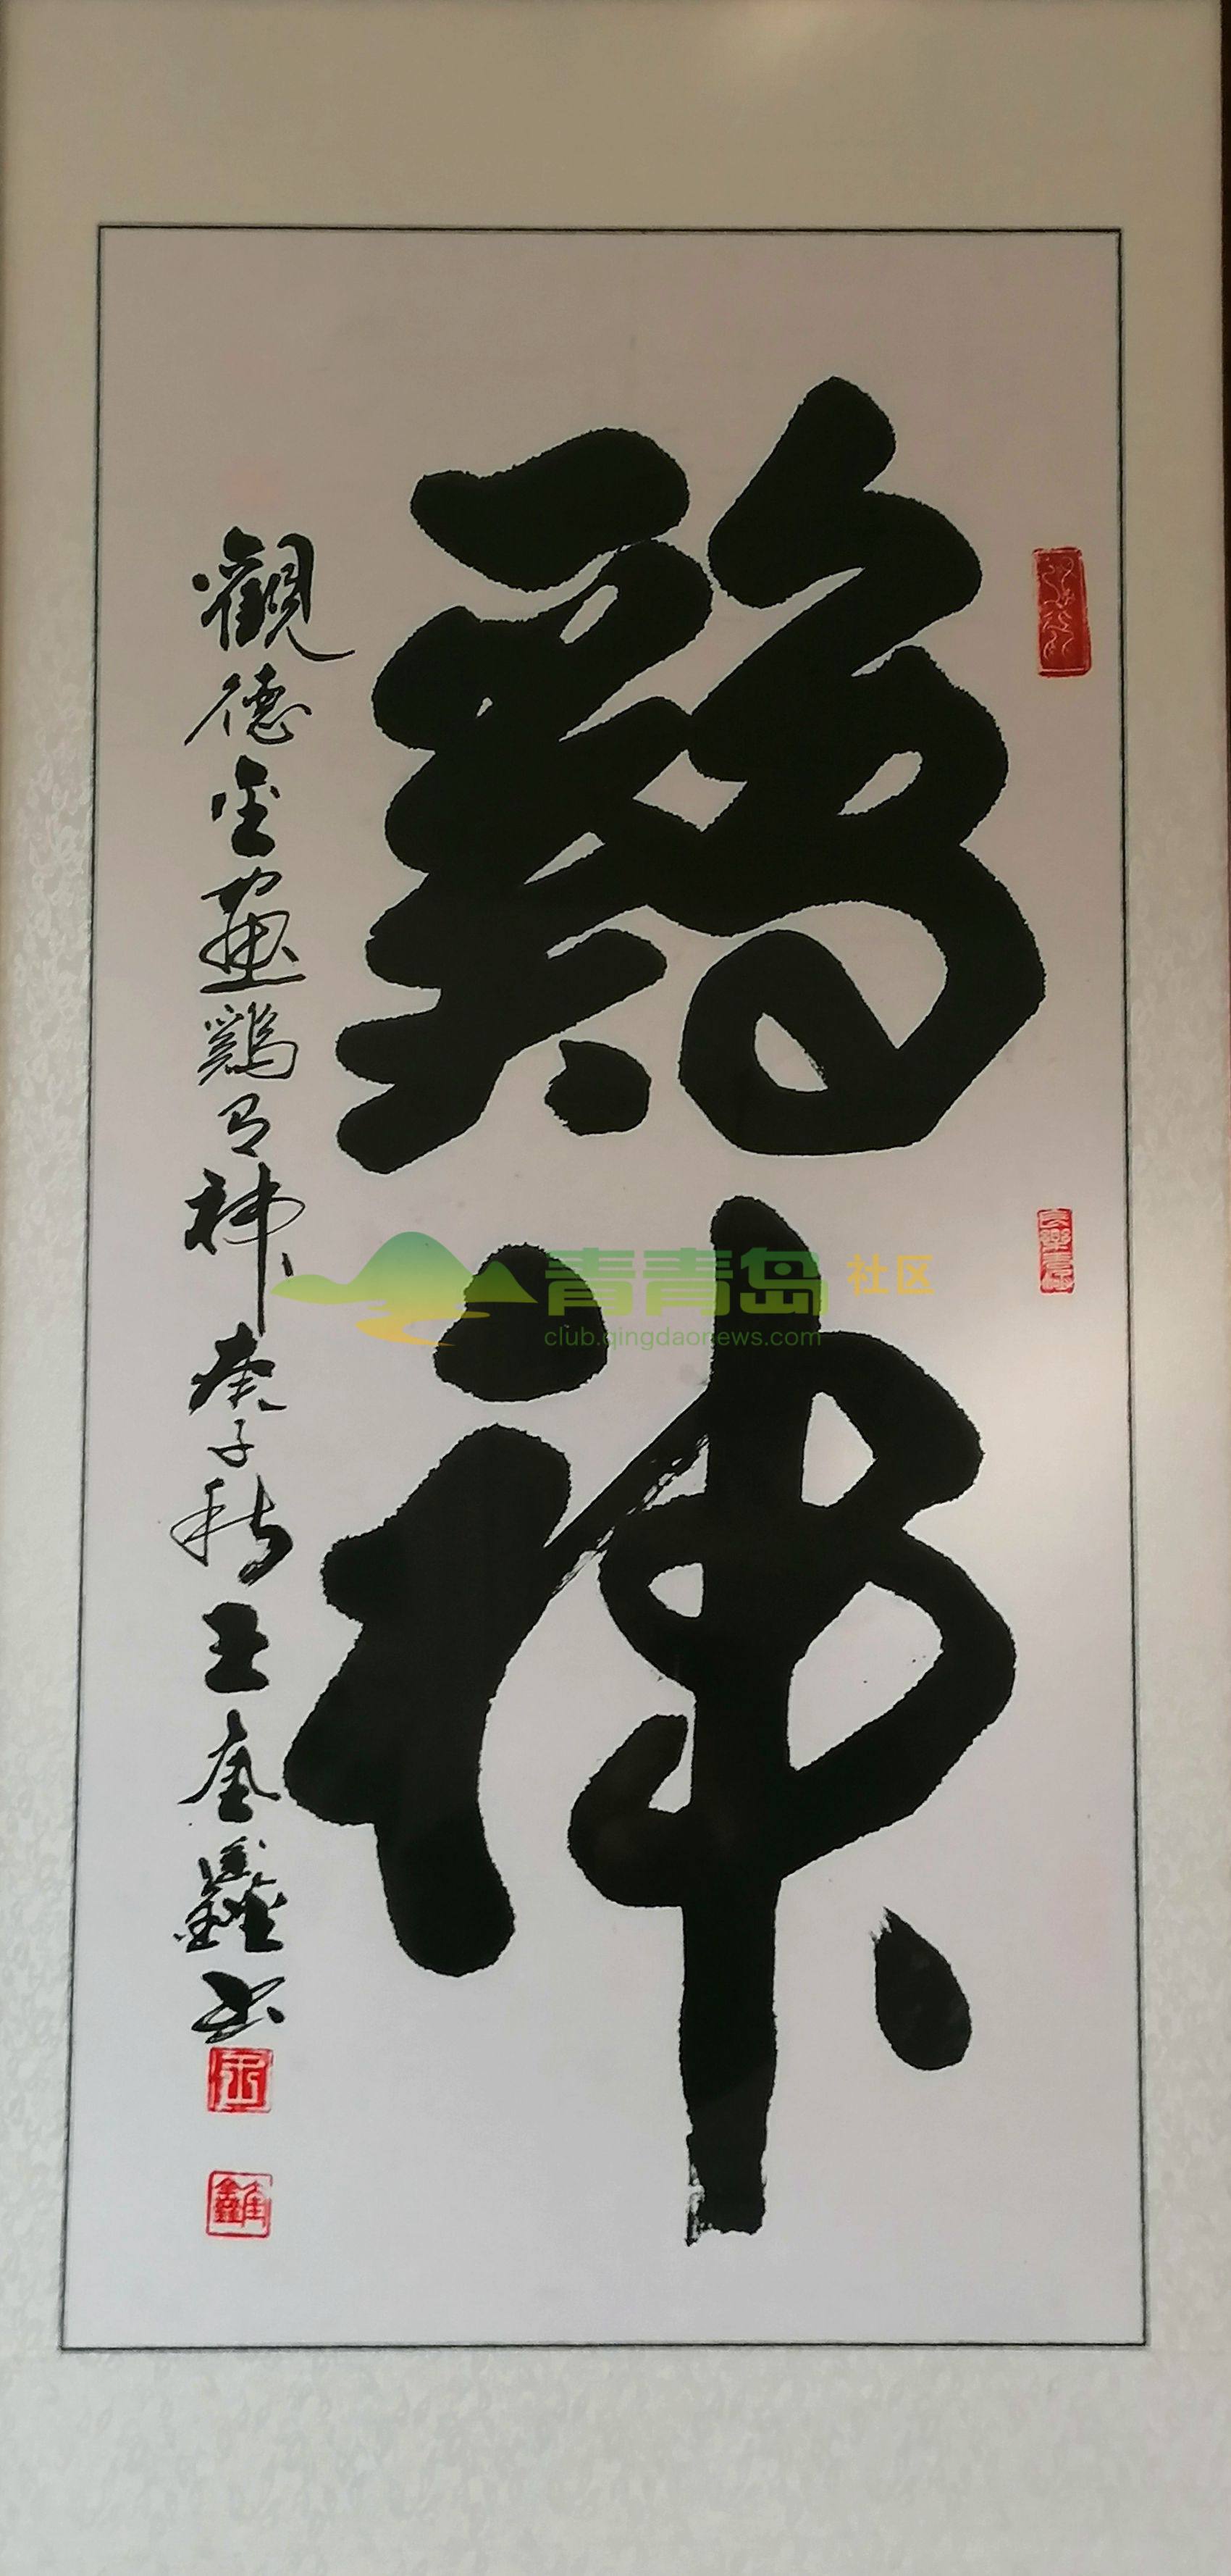 鷄神
觀德金畫鷄有神庚子秋王奎鑫书
青青岛社区
club.qingdaonews.com